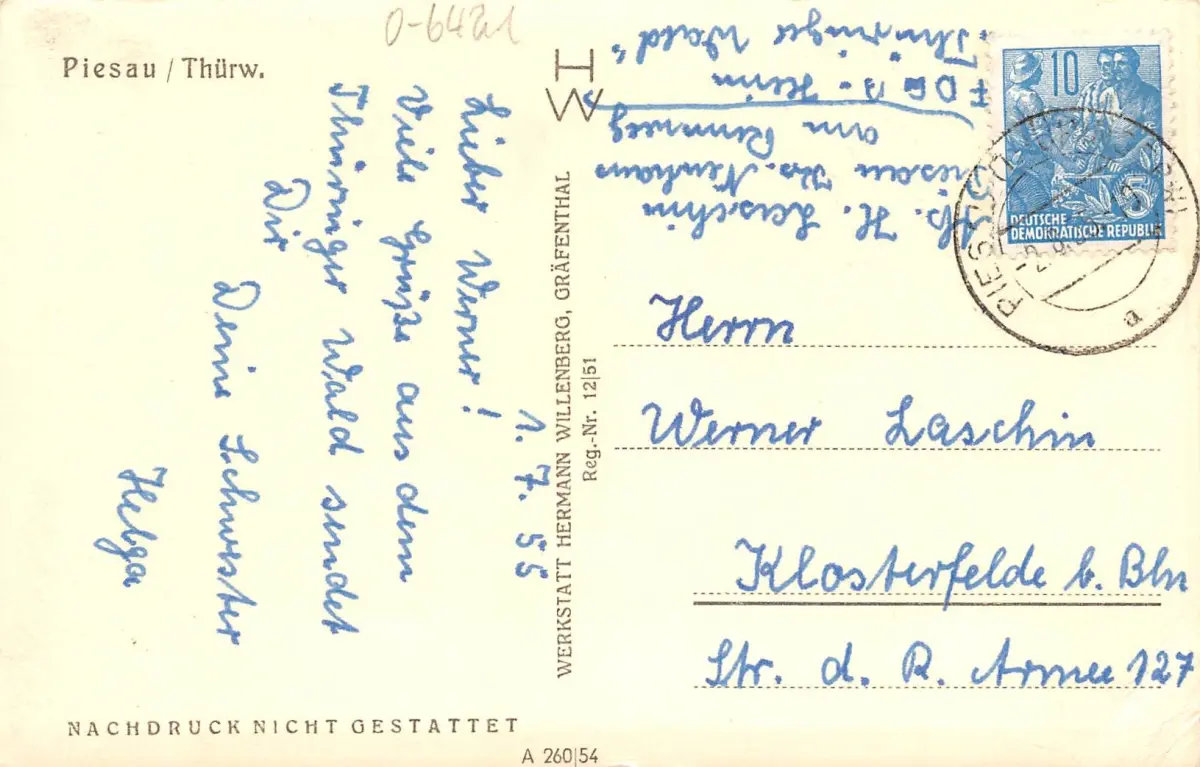 O-6421
Piesau / Thürw.
1. 7. 55
Lieber Werner!
Viele Grüße aus dem
Thüringer Wald sendet
Dir
Deine Schwester
Helga
NACHDRUCK NICHT GESTATTET
A 260|54
WERKSTATT HERMANN WILLENBERG, GRÄFENTHAL
Reg.-Nr. 12|51
HW
Abs. H. Laschin
Piesau Krs. Neuhaus
am Rennweg
FDGB-Heim
"Thüringer Wald"
10
5
DEUTSCHE
DEMOKRATISCHE REPUBLIK
PIESAU
a
Herrn
Werner Laschin
Klosterfelde b. Bln
Str. d. R. Armee 127